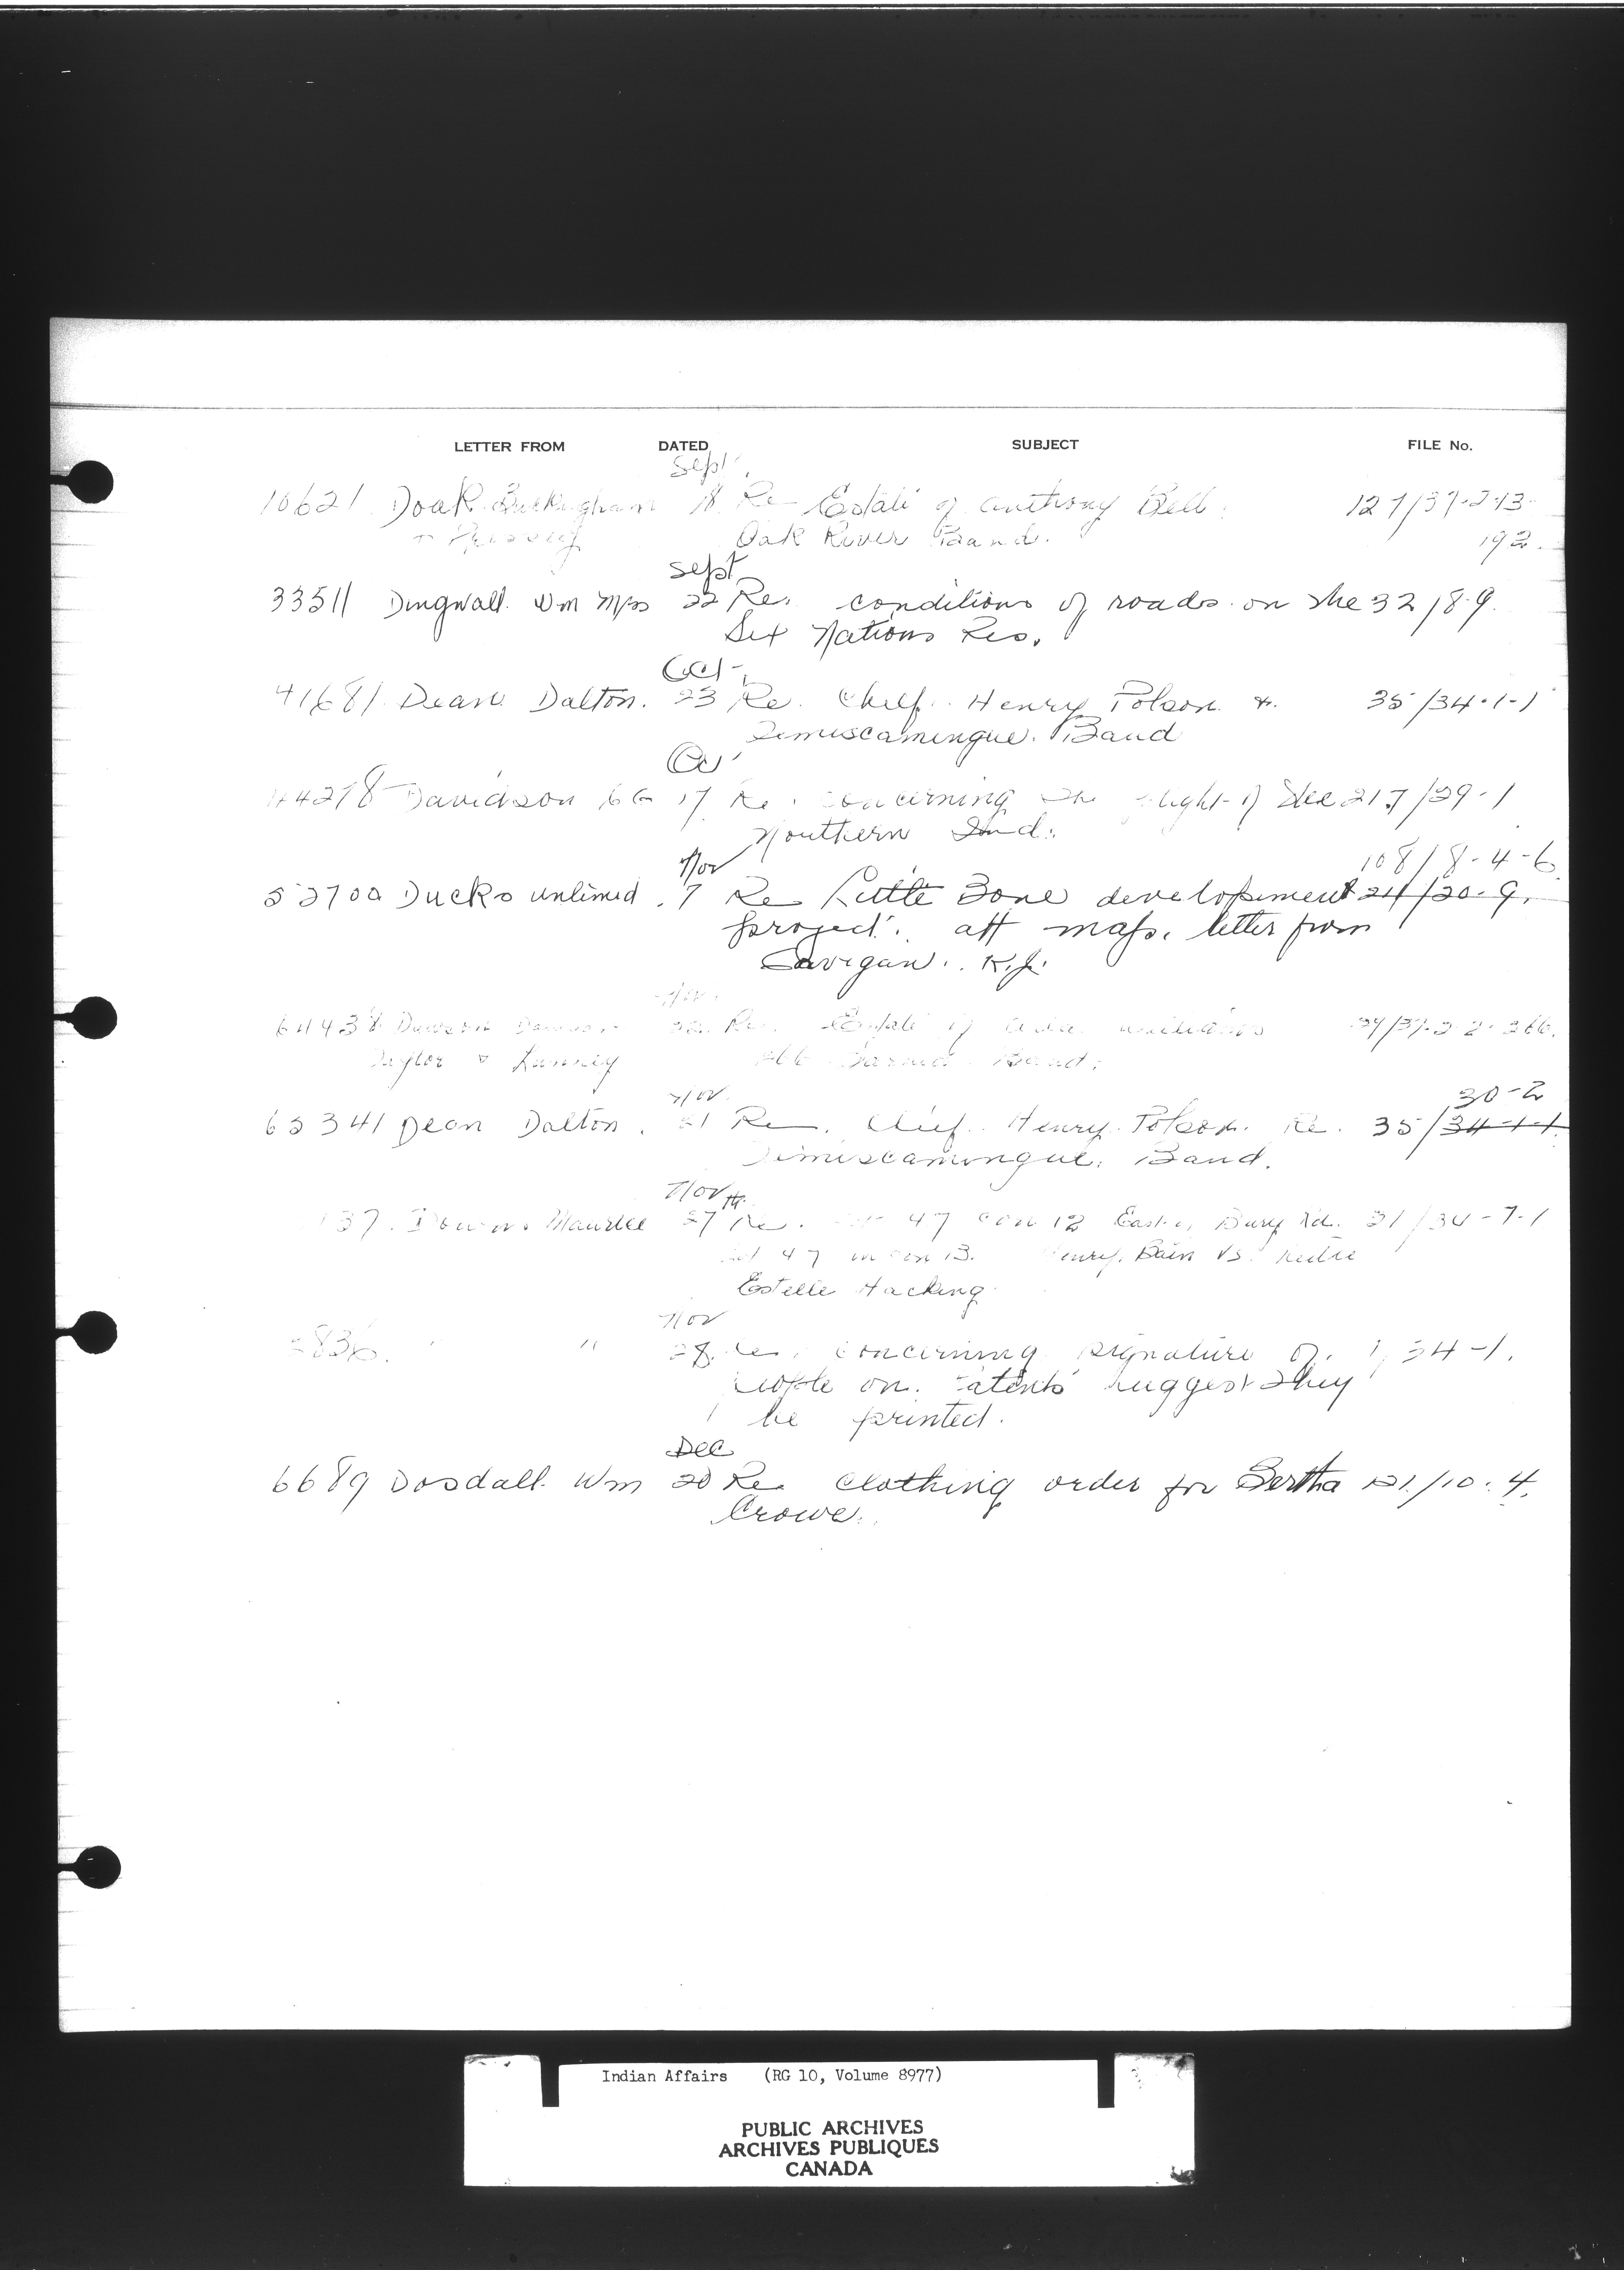 LETTER FROM DATED SUBJECT FILE No.
Sept
10621 Doak Buckingham 18 Re Estate of Anthony Bell. 127/37-2-13-
Oak River Band. 192.
Sept
33511 Dingwall. Wm Mrs 22 Re. conditions of roads on the 32/8-9.
Six Nations Res.
Oct
41681 Dean Dalton. 23 Re. Chief. Henry Polson 35/34-1-1
Temiscamingue. Band
Oct
44278 Davidson 17 Re. concerning the plight of the 217/29-1
Northern Ind.
Nov 108/8-4-6
52700 Ducks unlimied. 7 Re Little Bone developement 24/20-9.
project. att maps. letter from
Gavigan. K.J.
Nov.
64438
Taylor & Band.
Nov. 30-2
65341 Dean Dalton. 21 Re. Chief. Henry Polson. Re. 35/34-1-1
Temiscamingue. Band.
Nov
37. Maurice 27 Re. 47 con 12 East of Bury Rd. 21/34-7-1
47 in con 13. Henry. Bain vs.
Estelle Hacking
Nov
" 28. Re. concerning signature of. 34-1.
people on. Patents suggest they
be printed.
Dec
6689 Dosdall. Wm 20 Re. clothing order for Bertha 121/10-4.
Crowe.
Indian Affairs (RG 10, Volume 8977)
PUBLIC ARCHIVES
ARCHIVES PUBLIQUES
CANADA